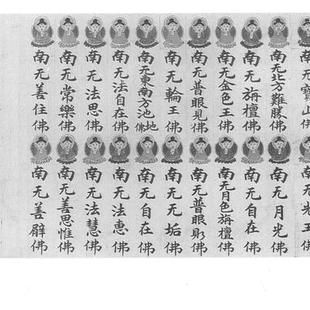 南无寶山佛
南无北方難勝佛
南无栴檀佛
南无金色王佛
南无普眼見佛
南无輪王佛
南无東南方治地佛
南无法自在佛
南无法思佛
南无常樂佛
南无善住佛
无光王佛
南无月光佛
南无自在佛
南无月色栴檀佛
南无普眼佛
南无无垢佛
南无自在佛
南无法恵佛
南无法慧佛
南无善思惟佛
南无善臂佛